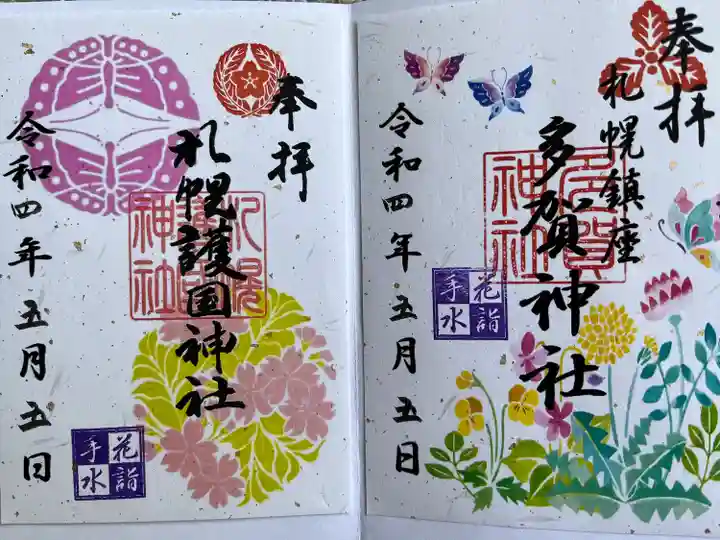 奉拝
札幌鎮座
多賀神社
多賀
神社
花詣
手水
令和四年五月五日
奉拝
札幌護国神社
札幌
護国
神社
花詣
手水
令和四年五月五日